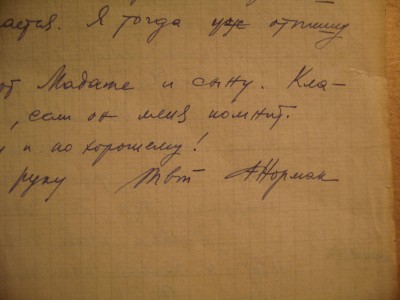 ается. Я тогда уж отпишу
от Мадате и сыну. Кла-
, если он меня помнит.
и по хорошему!
руку Твой АНорман